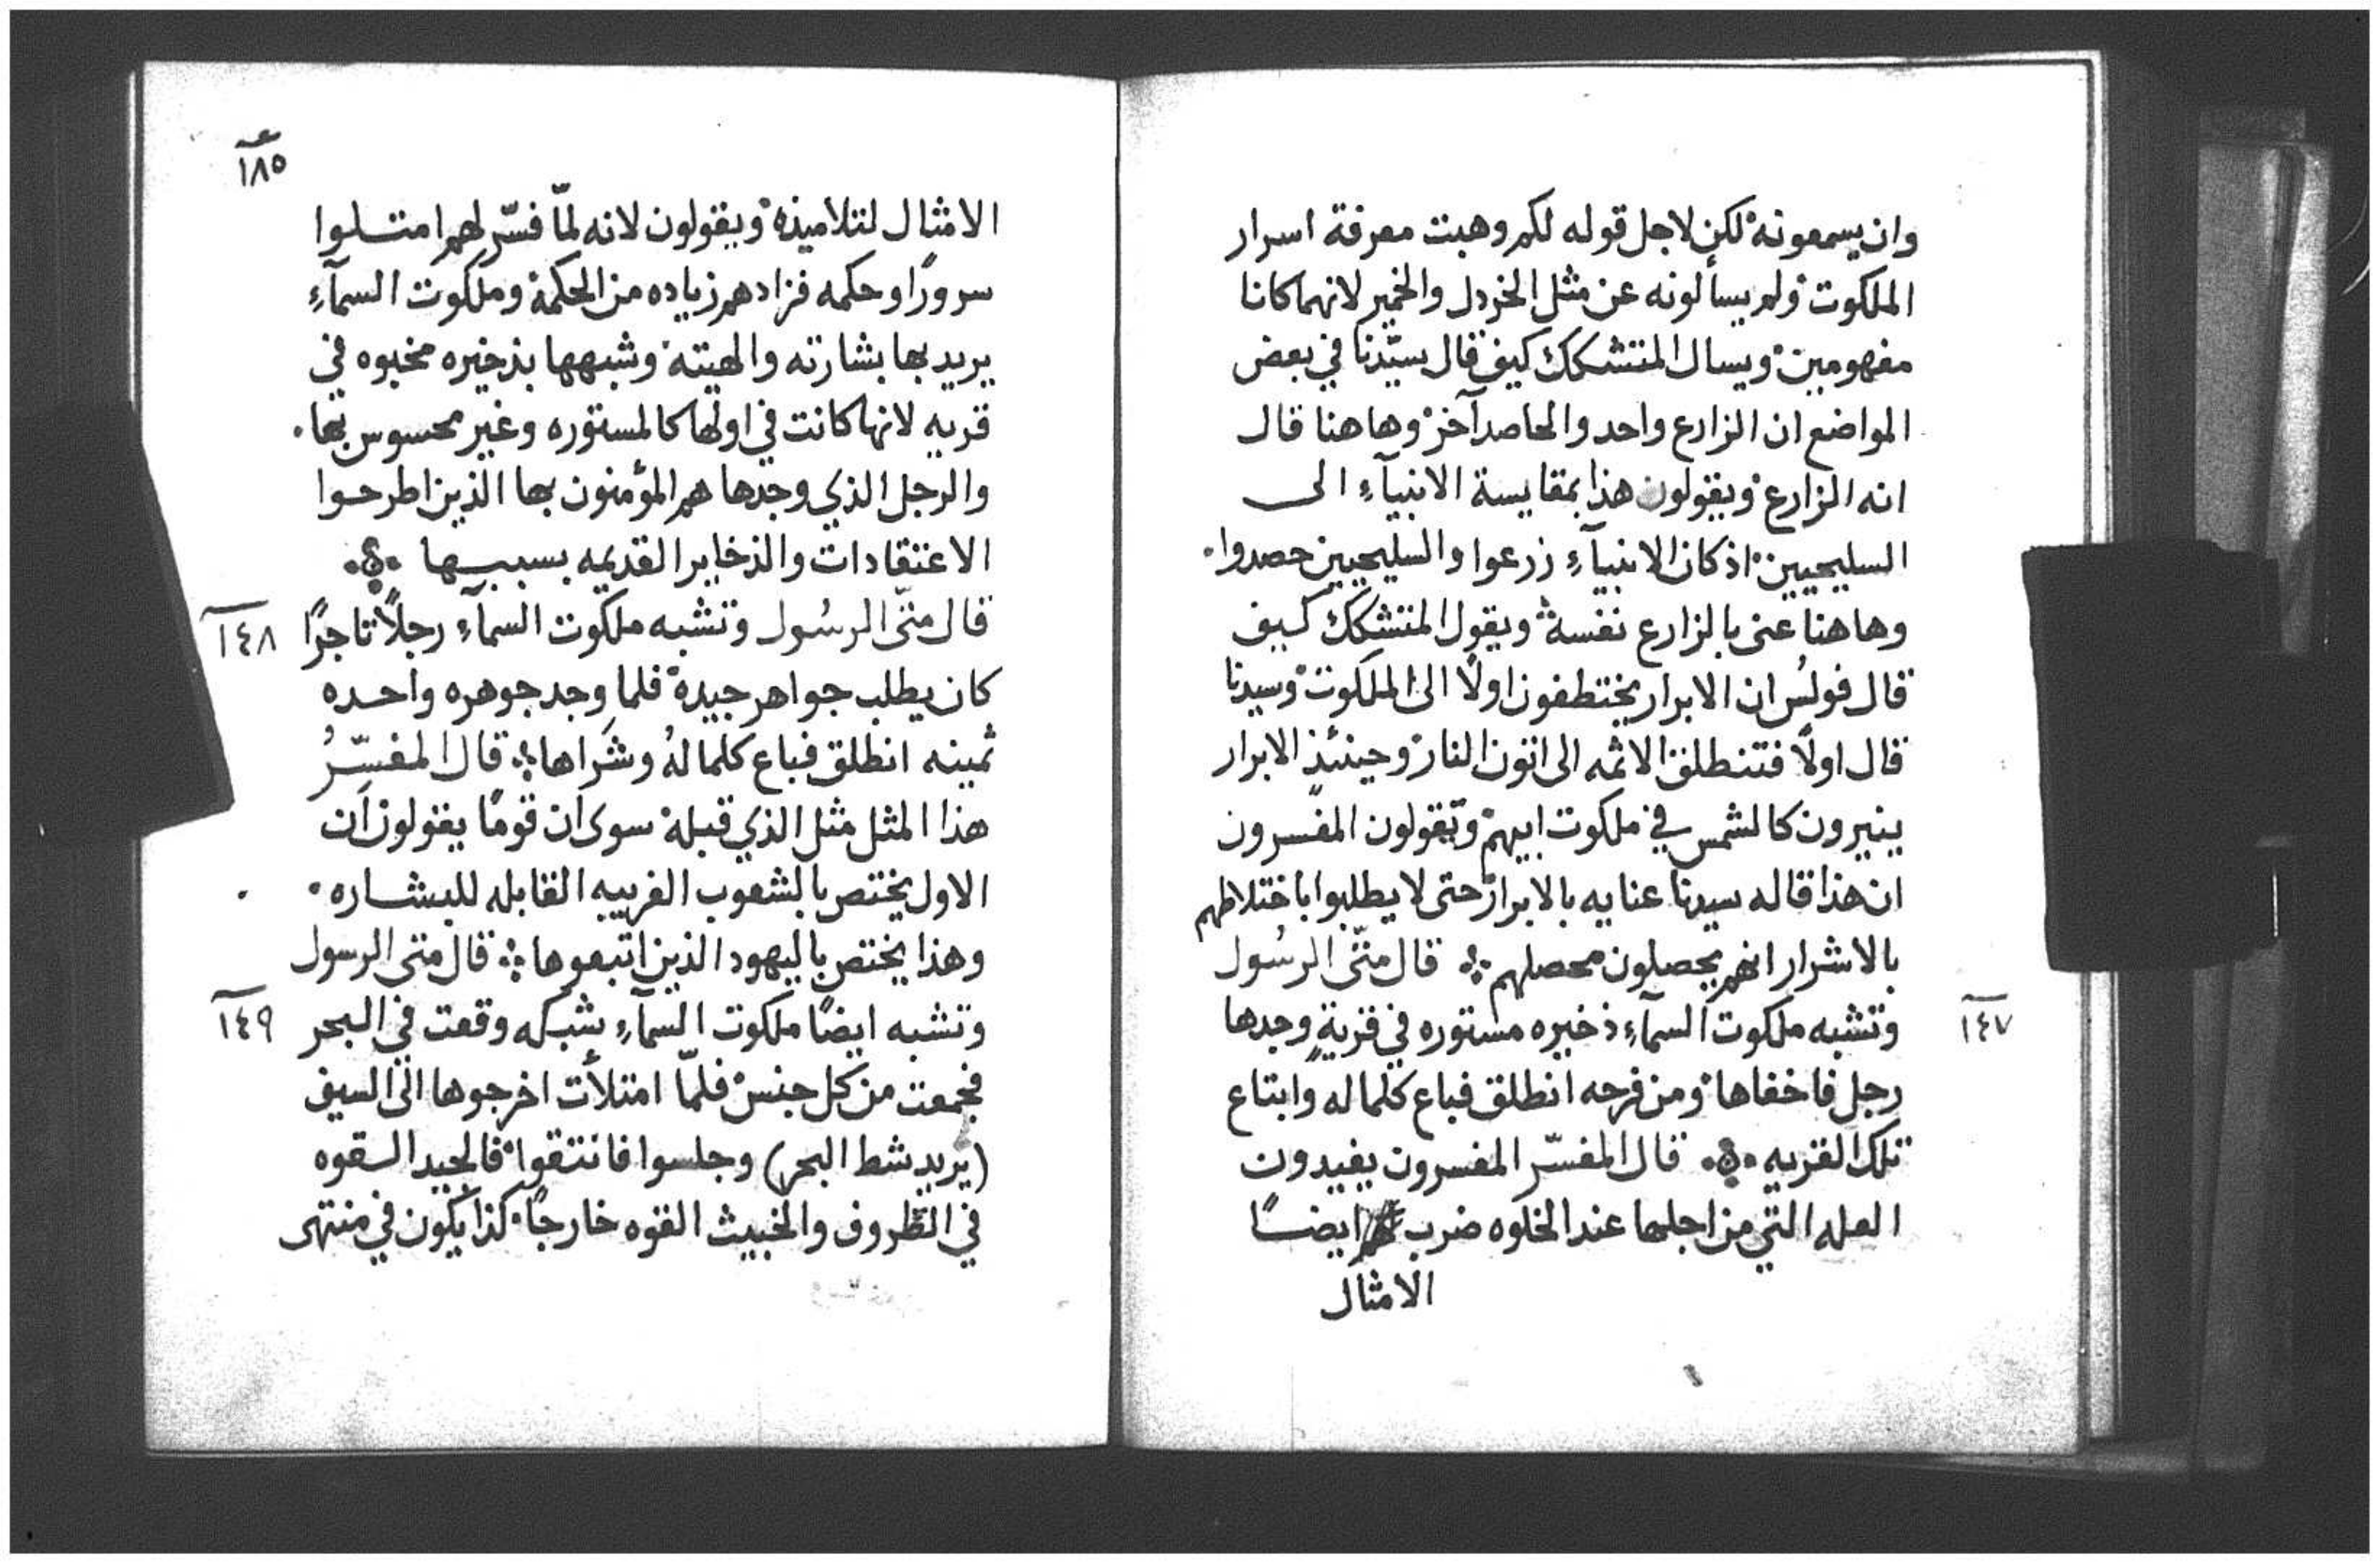 وان يسمعونه لكن لاجل قوله لكم وهبت معرفة اسرار
الملكوت ولم يسألونه عن مثل الخردل والخمير لانهما كانا
مفهومين ويسال المتشكك كيف قال سيّدنا في بعض
المواضع ان الزارع واحد والحاصد آخر وهاهنا قال
انه الزارع ويقولون هذا بمقايسة الانبيآءِ الى
السليحيين اذ كان الانبيآءِ زرعوا والسليحيين حصدوا.
وهاهنا عنى بالزارع نفسه ويقول المتشكك كيف
قال فولُس ان الابرار يختطفون اولًا الى الملكوت وسيدنا
قال اولًا فتنطلق الاثمه الى اتون النار وحينئذ الابرار
ينيرون كالشمس في ملكوت ابيهم ويقولون المفسرون
ان هذا قاله سيدنا عنايه بالابرار حتى لا يطلبوا باختلاطهم
بالاشرار انهم يحصلون محصلهم ܀ قال متّى الرسُول
١٤٧
وتشبه ملكوت السمآءِ ذخيره مستوره في قريةٍ وجدها
رجل فاخفاها ومن فرحه انطلق فباع كلما له وابتاع
تلك القريه ܀ قال المفسّر المفسرون يفيدون
العله التي من اجلها عند الخلوه ضرب لهم ايضًا
الامثال
١٨٥
الامثال لتلاميذه ويقولون لانه لمّا فسّر لهم امتلوا
سرورًا وحكمه فزادهم زياده من الحكمة وملكوت السمآءِ
يريد بها بشارته والهيته وشبهها بذخيره مخبوه في
قريه لانها كانت في اولها كالمستوره وغير محسوس بها.
والرجل الذي وجدها هم المؤمنون بها الذين اطرحوا
الاعتقادات والذخاير القديمه بسببها ܀
١٤٨
قال متّى الرسُول وتشبه ملكوت السمآءِ رجلًا تاجرًا
كان يطلب جواهر جيدة فلما وجد جوهره واحده
ثمينه انطلق فباع كلما لهُ وشراها ܀ قال المفسّرُ
هذا المثل مثل الذي قبله سوى ان قومًا يقولون ان
الاول يختص بالشعوب الغريبه القابله للبشاره.
وهذا يختص باليهود الذين اتبعوها ܀ قال متى الرسول
١٤٩
وتشبه ايضًا ملكوت السمآءِ شبكه وقعت في البحر
فجمعت من كل جنس فلمّا امتلأت اخرجوها الى السيف
(يريد شط البحر) وجلسوا فانتقوا فالجيد القوه
في الظروف والخبيث القوه خارجًا كذا يكون في منتهى